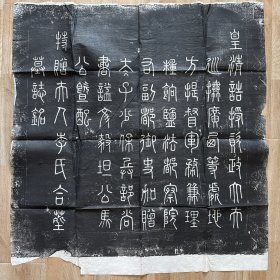 皇清誥授資政大夫
巡撫廣西等處地
方提督軍務兼理
糧餉鹽法都察院
右副都御史加贈
太子少保兵部尚
書諡文毅坦公馬
公暨配
特贈夫人李氏合葬
墓誌銘